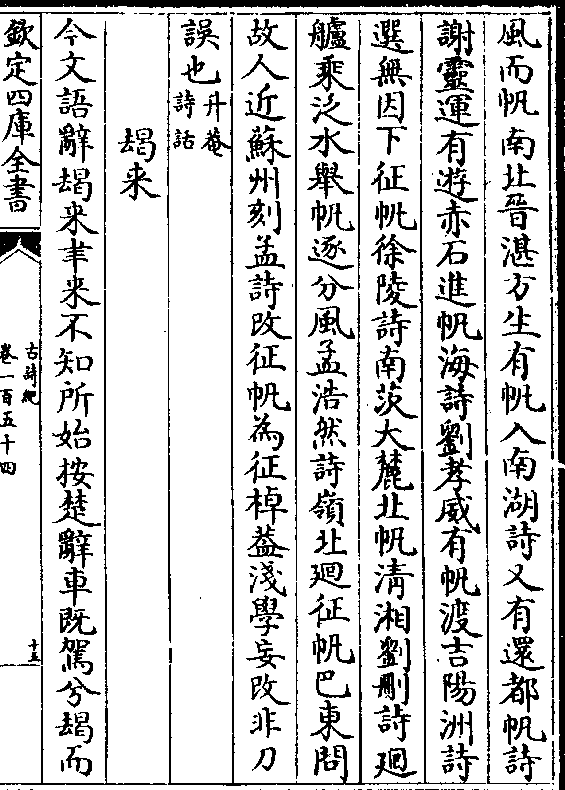 風而帆南北晉湛方生有帆入南湖詩又有還都帆詩
謝靈運有遊赤石進帆海詩劉孝威有帆渡吉陽洲詩
選無因下征帆徐陵詩南茨大麓北帆清湘劉刪詩廻
艫乘泛水舉帆逐分風孟浩然詩嶺北廻征帆巴東問
故人近蘇州刻孟詩改征帆為征棹葢淺學妄改非刀
誤也丹菴
詩話
朅来
今文語辭朅来聿来不知所始按楚辭車既駕兮朅而
欽定四庫全書
古詩紀
卷一百五十四
十五